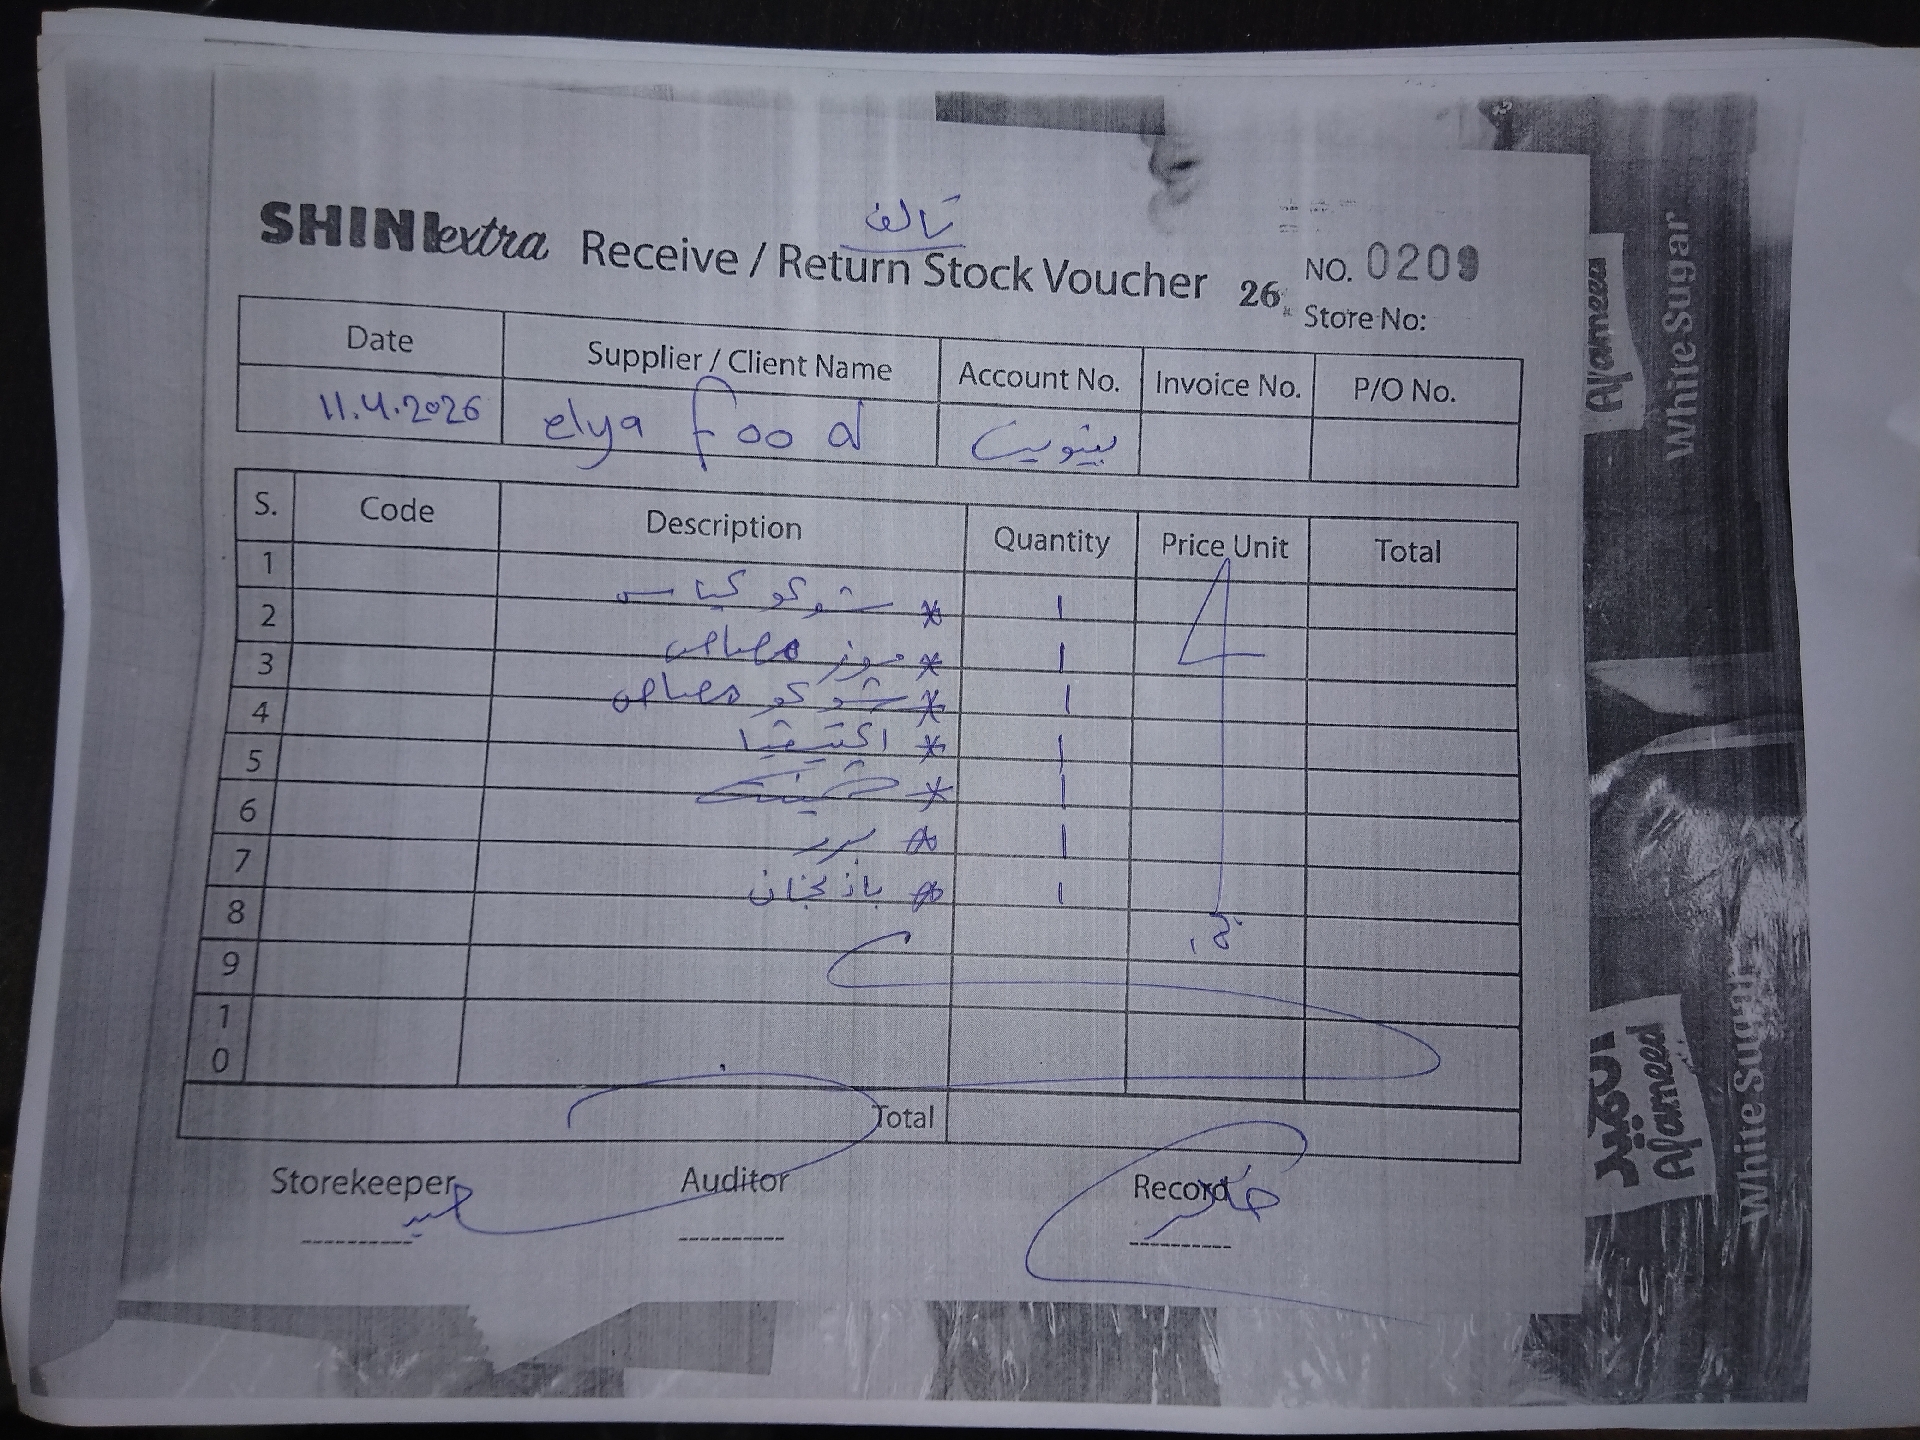 تالف
SHINIextra Receive / Return Stock Voucher 26
NO. 0209
Store No:
Date Supplier / Client Name Account No. Invoice No. P/O No.
11.4.2026 elya food بينويت
S. Code Description Quantity Price Unit Total
1 * شوكو كياس 1
2 * موز مصاص 1
3 * شوكو مصاص 1
4 * اكتيفيا 1
5 * 1
6 * 1
7 * باذنجان 1
8
9
10
Total
Storekeeper Auditor Record
Alameed
White Sugar
العميد
Alameed
White Sugar